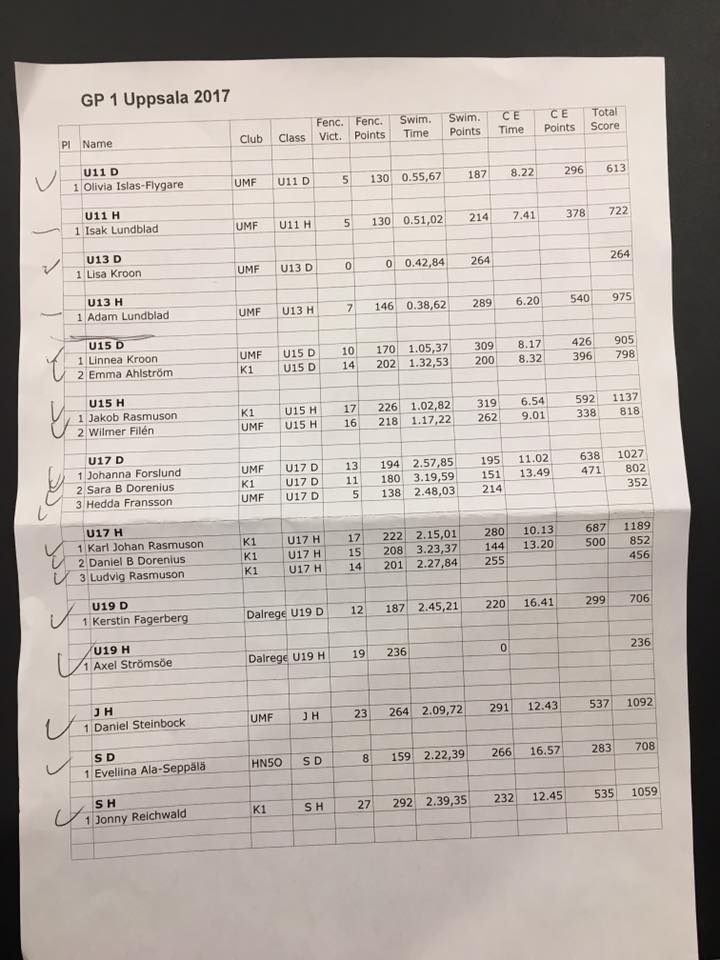 GP 1 Uppsala 2017
Pl Name Club Class Fenc. Vict. Fenc. Points Swim. Time Swim. Points C E Time C E Points Total Score
U11 D
1 Olivia Islas-Flygare UMF U11 D 5 130 0.55,67 187 8.22 296 613
U11 H
1 Isak Lundblad UMF U11 H 5 130 0.51,02 214 7.41 378 722
U13 D
1 Lisa Kroon UMF U13 D 0 0 0.42,84 264 264
U13 H
1 Adam Lundblad UMF U13 H 7 146 0.38,62 289 6.20 540 975
U15 D
1 Linnea Kroon UMF U15 D 10 170 1.05,37 309 8.17 426 905
2 Emma Ahlström K1 U15 D 14 202 1.32,53 200 8.32 396 798
U15 H
1 Jakob Rasmuson K1 U15 H 17 226 1.02,82 319 6.54 592 1137
2 Wilmer Filén UMF U15 H 16 218 1.17,22 262 9.01 338 818
U17 D
1 Johanna Forslund UMF U17 D 13 194 2.57,85 195 11.02 638 1027
2 Sara B Dorenius K1 U17 D 11 180 3.19,59 151 13.49 471 802
3 Hedda Fransson UMF U17 D 5 138 2.48,03 214 352
U17 H
1 Karl Johan Rasmuson K1 U17 H 17 222 2.15,01 280 10.13 687 1189
2 Daniel B Dorenius K1 U17 H 15 208 3.23,37 144 13.20 500 852
3 Ludvig Rasmuson K1 U17 H 14 201 2.27,84 255 456
U19 D
1 Kerstin Fagerberg Dalrege U19 D 12 187 2.45,21 220 16.41 299 706
U19 H
1 Axel Strömsöe Dalrege U19 H 19 236 0 236
J H
1 Daniel Steinbock UMF J H 23 264 2.09,72 291 12.43 537 1092
S D
1 Eveliina Ala-Seppälä HN5O S D 8 159 2.22,39 266 16.57 283 708
S H
1 Jonny Reichwald K1 S H 27 292 2.39,35 232 12.45 535 1059